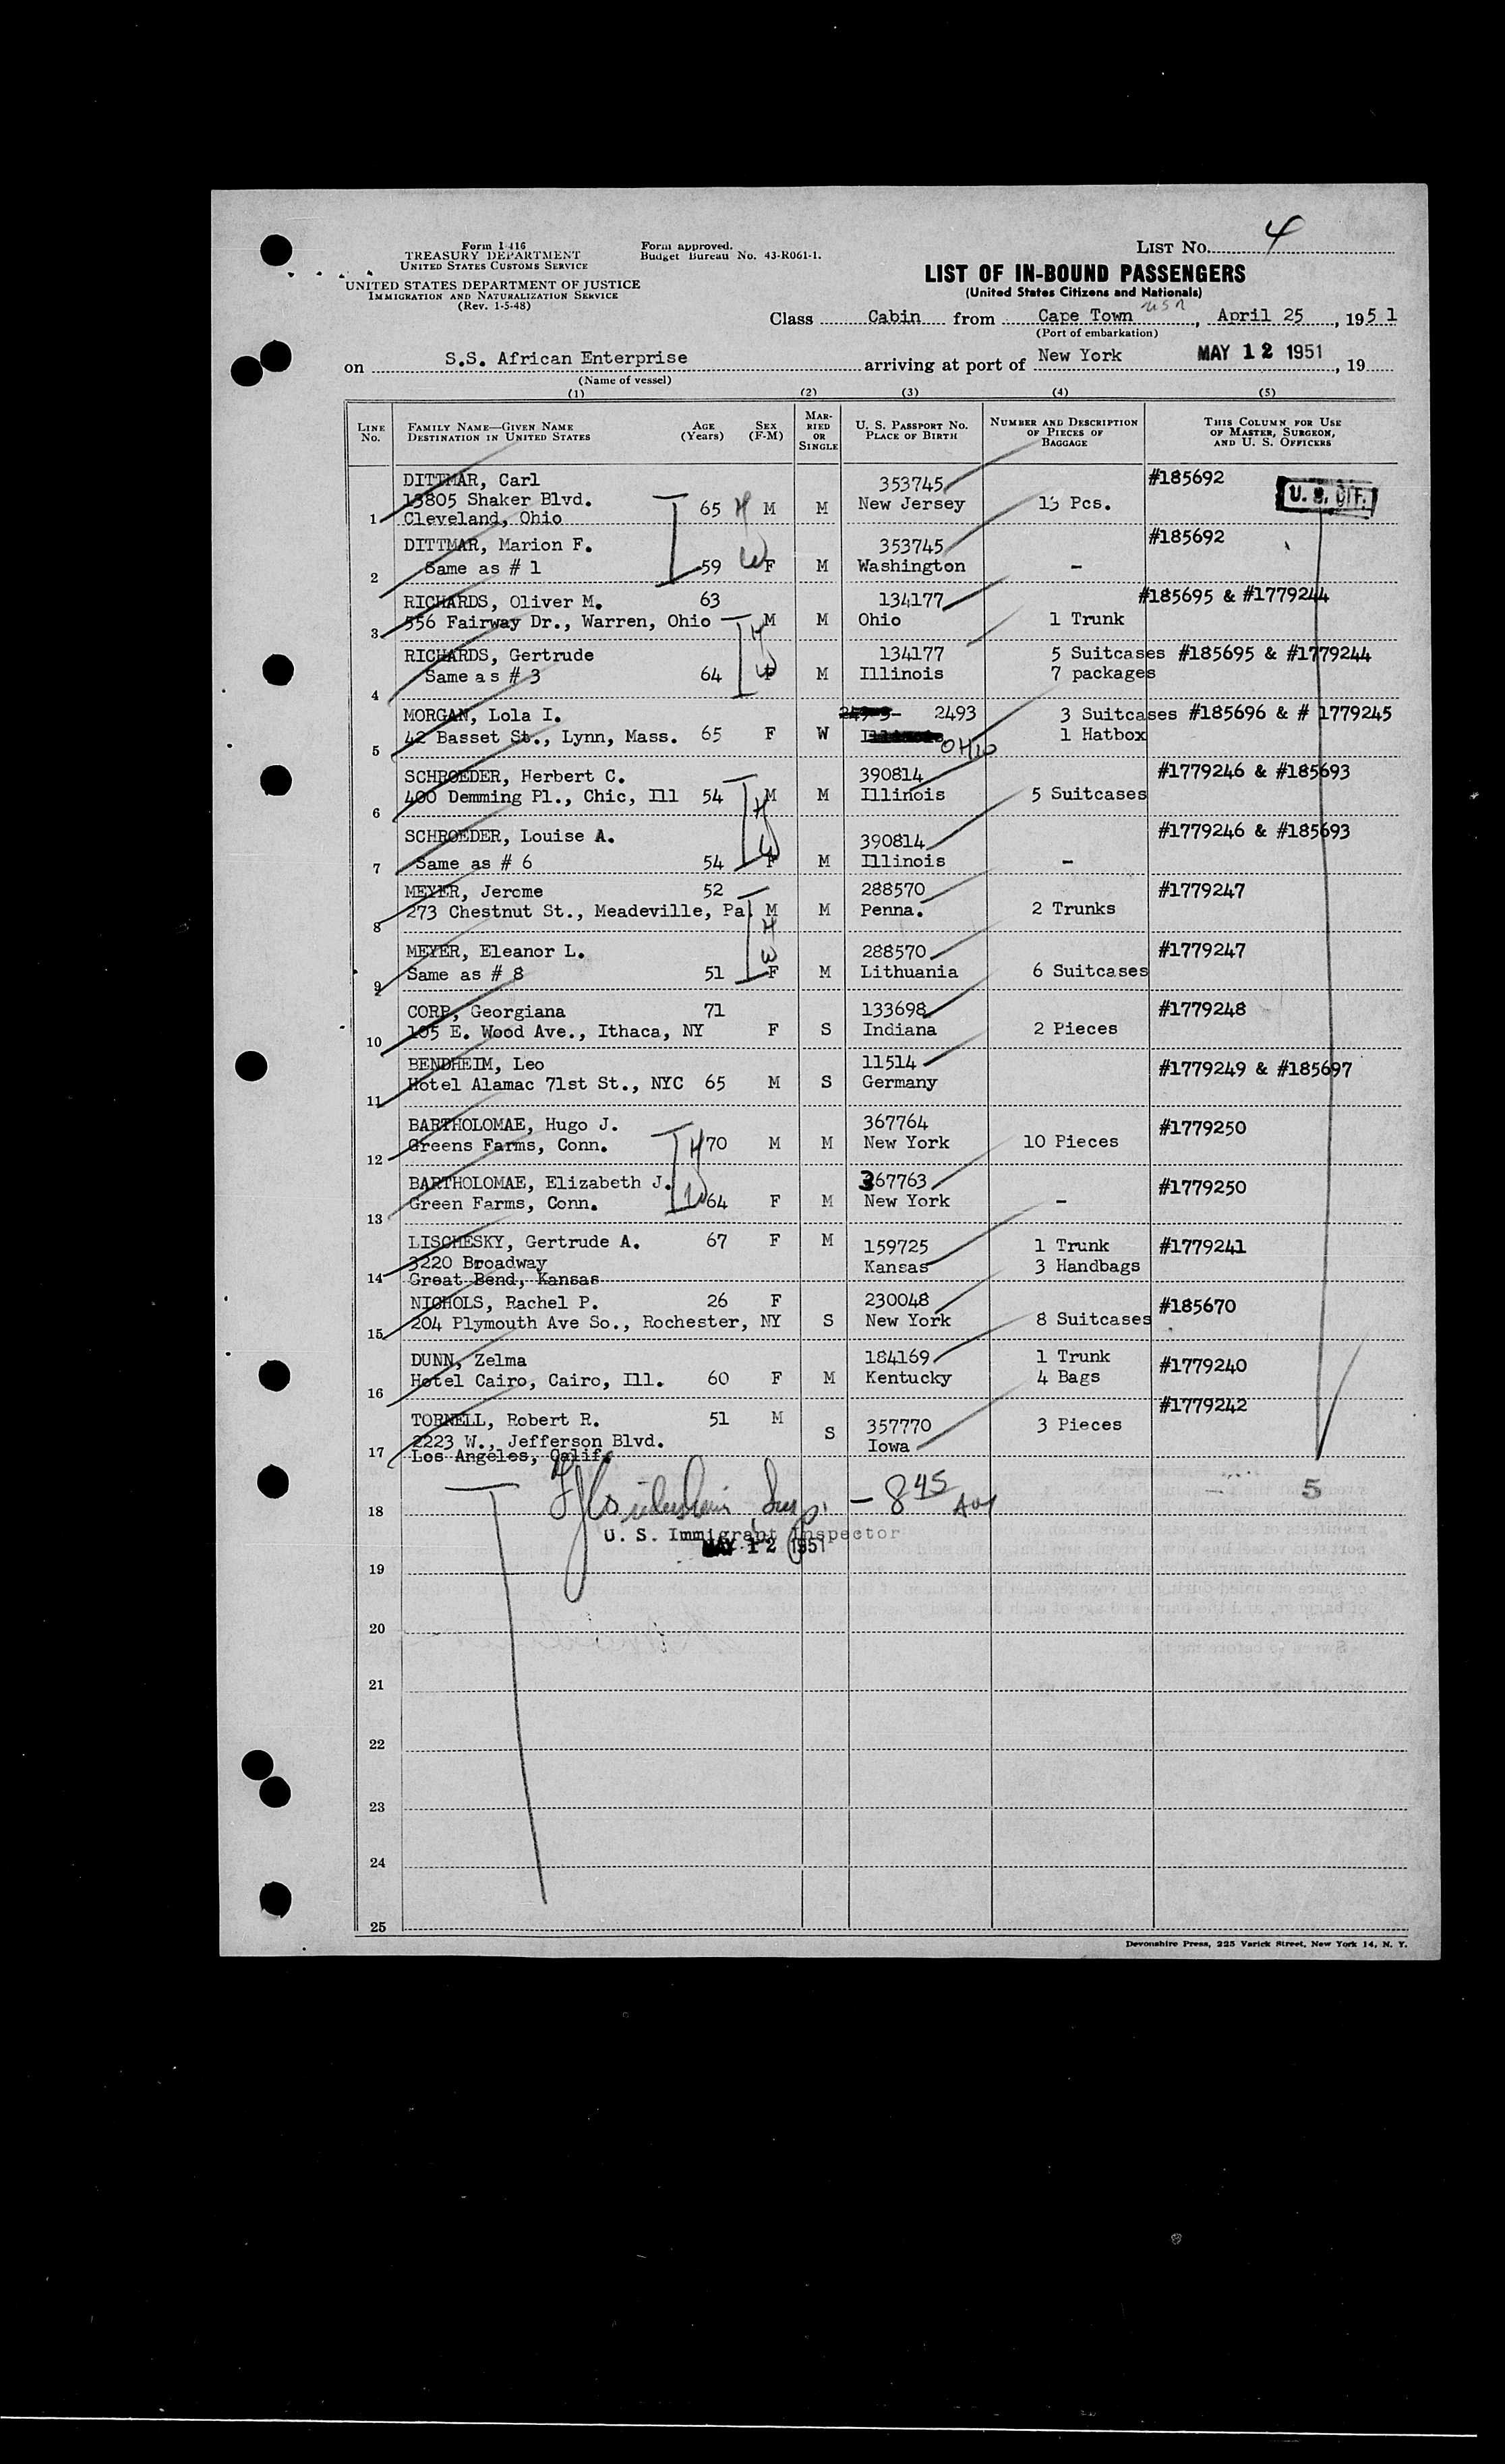 Form I 416
TREASURY DEPARTMENT
UNITED STATES CUSTOMS SERVICE
UNITED STATES DEPARTMENT OF JUSTICE
IMMIGRATION AND NATURALIZATION SERVICE
(Rev. 1-5-48)
Form approved.
Budget Bureau No. 43-R061-1.
LIST No. 4
LIST OF IN-BOUND PASSENGERS
(United States Citizens and Nationals)
Class Cabin from Cape Town, April 25, 1951
(Port of embarkation)
on S.S. African Enterprise arriving at port of New York MAY 12 1951, 19
(Name of vessel)
(1) (2) (3) (4) (5)
LINE No. FAMILY NAME—GIVEN NAME DESTINATION IN UNITED STATES AGE (Years) SEX (F-M) MARRIED OR SINGLE U. S. PASSPORT No. PLACE OF BIRTH NUMBER AND DESCRIPTION OF PIECES OF BAGGAGE THIS COLUMN FOR USE OF MASTER, SURGEON, AND U. S. OFFICERS
DITTMAR, Carl 353745 #185692 U. S. CIT.
13805 Shaker Blvd. 65 H M M New Jersey 13 Pcs.
1 Cleveland, Ohio
DITTMAR, Marion F. 353745 #185692
2 Same as # 1 59 W F M Washington -
RICHARDS, Oliver M. 63 134177 #185695 & #1779244
3 556 Fairway Dr., Warren, Ohio H M M Ohio 1 Trunk
RICHARDS, Gertrude 134177 5 Suitcases #185695 & #1779244
4 Same as # 3 64 W F M Illinois 7 packages
MORGAN, Lola I. 2493 3 Suitcases #185696 & # 1779245
5 42 Basset St., Lynn, Mass. 65 F W Ohio 1 Hatbox
SCHROEDER, Herbert C. 390814 #1779246 & #185693
6 400 Demming Pl., Chic, Ill 54 H M M Illinois 5 Suitcases
SCHROEDER, Louise A. 390814 #1779246 & #185693
7 Same as # 6 54 W F M Illinois -
MEYER, Jerome 52 288570 #1779247
8 273 Chestnut St., Meadeville, Pa. M H M Penna. 2 Trunks
MEYER, Eleanor L. W 288570 #1779247
9 Same as # 8 51 F M Lithuania 6 Suitcases
CORP, Georgiana 71 133698 #1779248
10 105 E. Wood Ave., Ithaca, NY F S Indiana 2 Pieces
BENDHEIM, Leo 11514 #1779249 & #185697
11 Hotel Alamac 71st St., NYC 65 M S Germany
BARTHOLOMAE, Hugo J. 367764 #1779250
12 Greens Farms, Conn. H 70 M M New York 10 Pieces
BARTHOLOMAE, Elizabeth J. 367763 #1779250
13 Green Farms, Conn. W 64 F M New York -
LISCHESKY, Gertrude A. 67 F M 159725 1 Trunk #1779241
3220 Broadway Kansas 3 Handbags
14 Great Bend, Kansas
NICHOLS, Rachel P. 26 F 230048 #185670
15 204 Plymouth Ave So., Rochester, NY S New York 8 Suitcases
DUNN, Zelma 184169 1 Trunk #1779240
16 Hotel Cairo, Cairo, Ill. 60 F M Kentucky 4 Bags
#1779242
TORNELL, Robert R. 51 M S 357770 3 Pieces
2223 W., Jefferson Blvd. Iowa
17 Los Angeles, Calif.
18 Insp. - 8 45 AM 5
U. S. Immigrant Inspector
MAY 12 1951
19
20
21
22
23
24
25
Devonshire Press, 225 Varick Street, New York 14, N. Y.